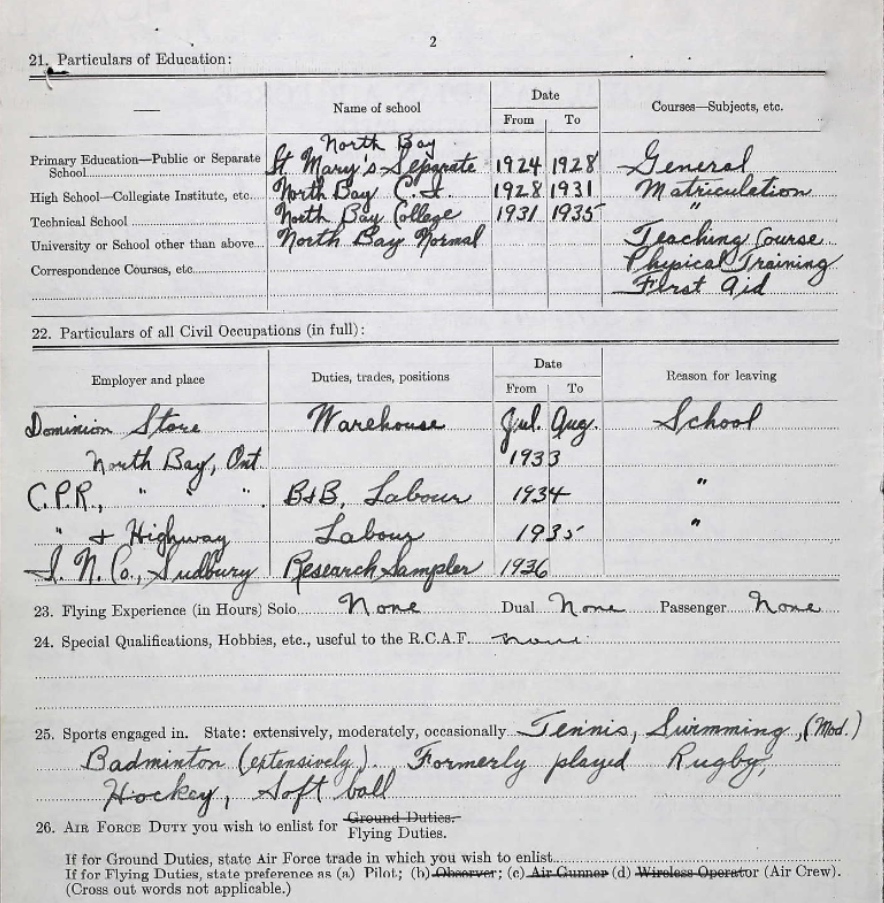 2
21. Particulars of Education:
— Name of school Date Courses—Subjects, etc.
From To
North Bay
Primary Education—Public or Separate School St. Mary's Separate 1924 1928 General
High School—Collegiate Institute, etc. North Bay C.I. 1928 1931 Matriculation
Technical School North Bay College 1931 1935 "
University or School other than above North Bay Normal Teaching Course
Correspondence Courses, etc. Physical Training
First Aid
22. Particulars of all Civil Occupations (in full):
Employer and place Duties, trades, positions Date Reason for leaving
From To
Dominion Store Warehouse Jul. Aug. School
North Bay, Ont. 1933
C.P.R., " " " B&B, Labour 1934 "
" & Highway Labour 1935 "
I. N. Co., Sudbury Research Sampler 1936
23. Flying Experience (in Hours) Solo None Dual None Passenger None
24. Special Qualifications, Hobbies, etc., useful to the R.C.A.F. none
25. Sports engaged in. State: extensively, moderately, occasionally Tennis, Swimming, (Mod.)
Badminton (extensively). Formerly played Rugby,
Hockey, Soft ball
26. AIR FORCE DUTY you wish to enlist for Ground Duties.
Flying Duties.
If for Ground Duties, state Air Force trade in which you wish to enlist
If for Flying Duties, state preference as (a) Pilot; (b) Observer; (c) Air Gunner (d) Wireless Operator (Air Crew).
(Cross out words not applicable.)